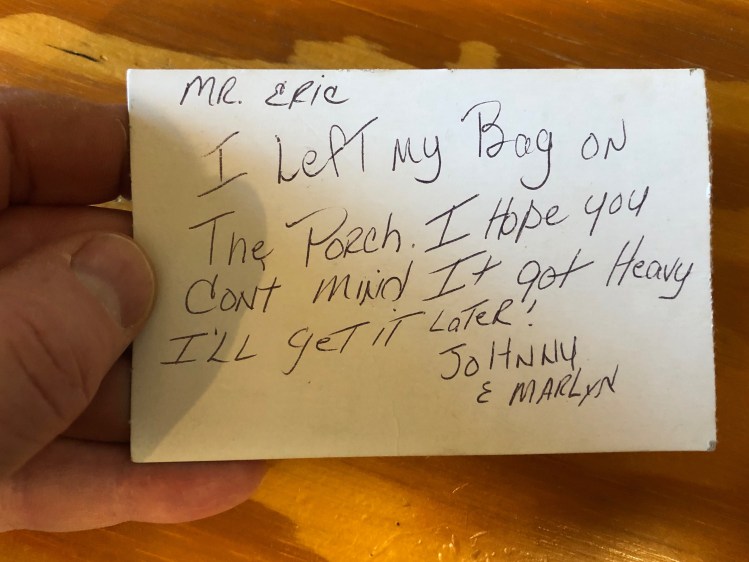 MR. ERic
I LefT My Bag oN
The PoRch. I Hope you
DoNT MiNd It got Heavy
I'LL geT iT LaTeR!
JoHNNy
& MARLyN